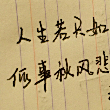 人生若只如
何事秋风悲